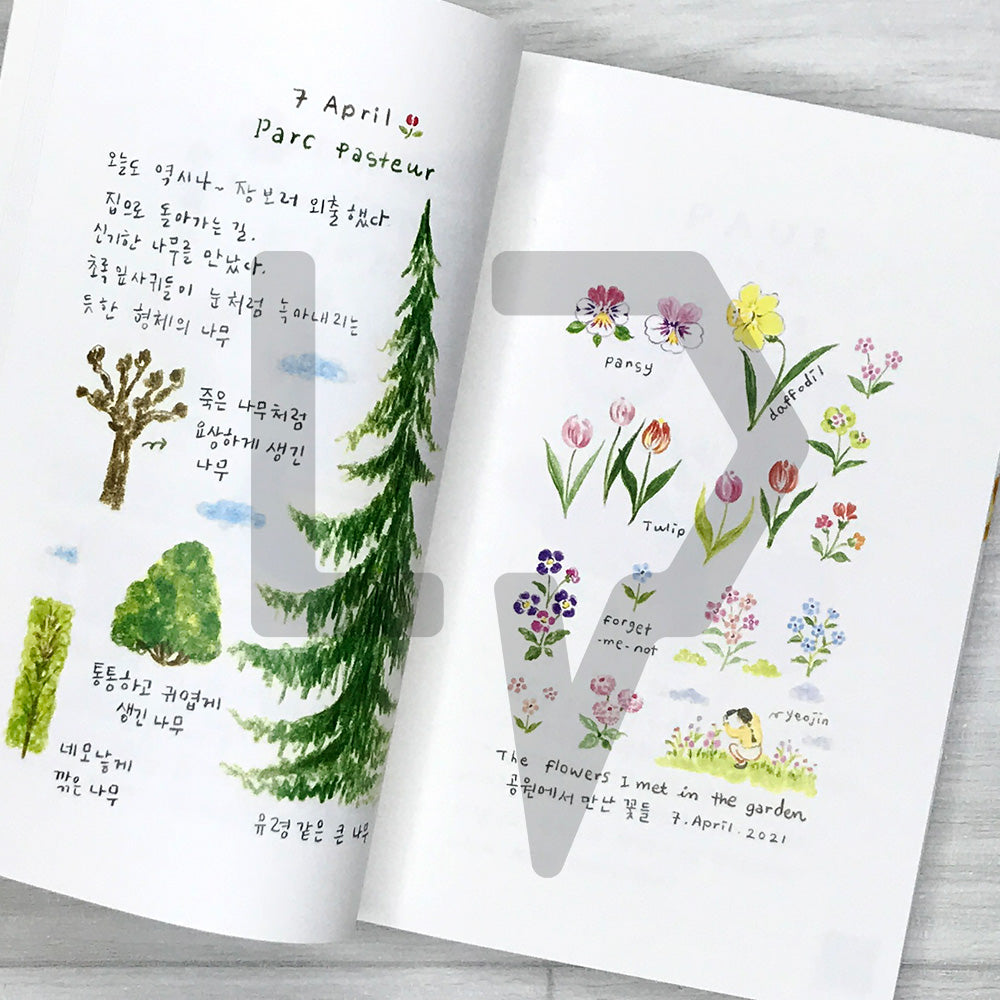 7 April
Parc Pasteur
오늘도 역시나~ 장보러 외출했다
집으로 돌아가는 길.
신기한 나무를 만났다.
초록 잎사귀들이 눈처럼 녹아내리는
듯한 형체의 나무
죽은 나무처럼
요상하게 생긴
나무
통통하고 귀엽게
생긴 나무
네모낳게
깎은 나무
유령같은 큰 나무
pansy
daffodil
Tulip
forget
-me-not
yeojin
The flowers I met in the garden
공원에서 만난 꽃들 7.April.2021